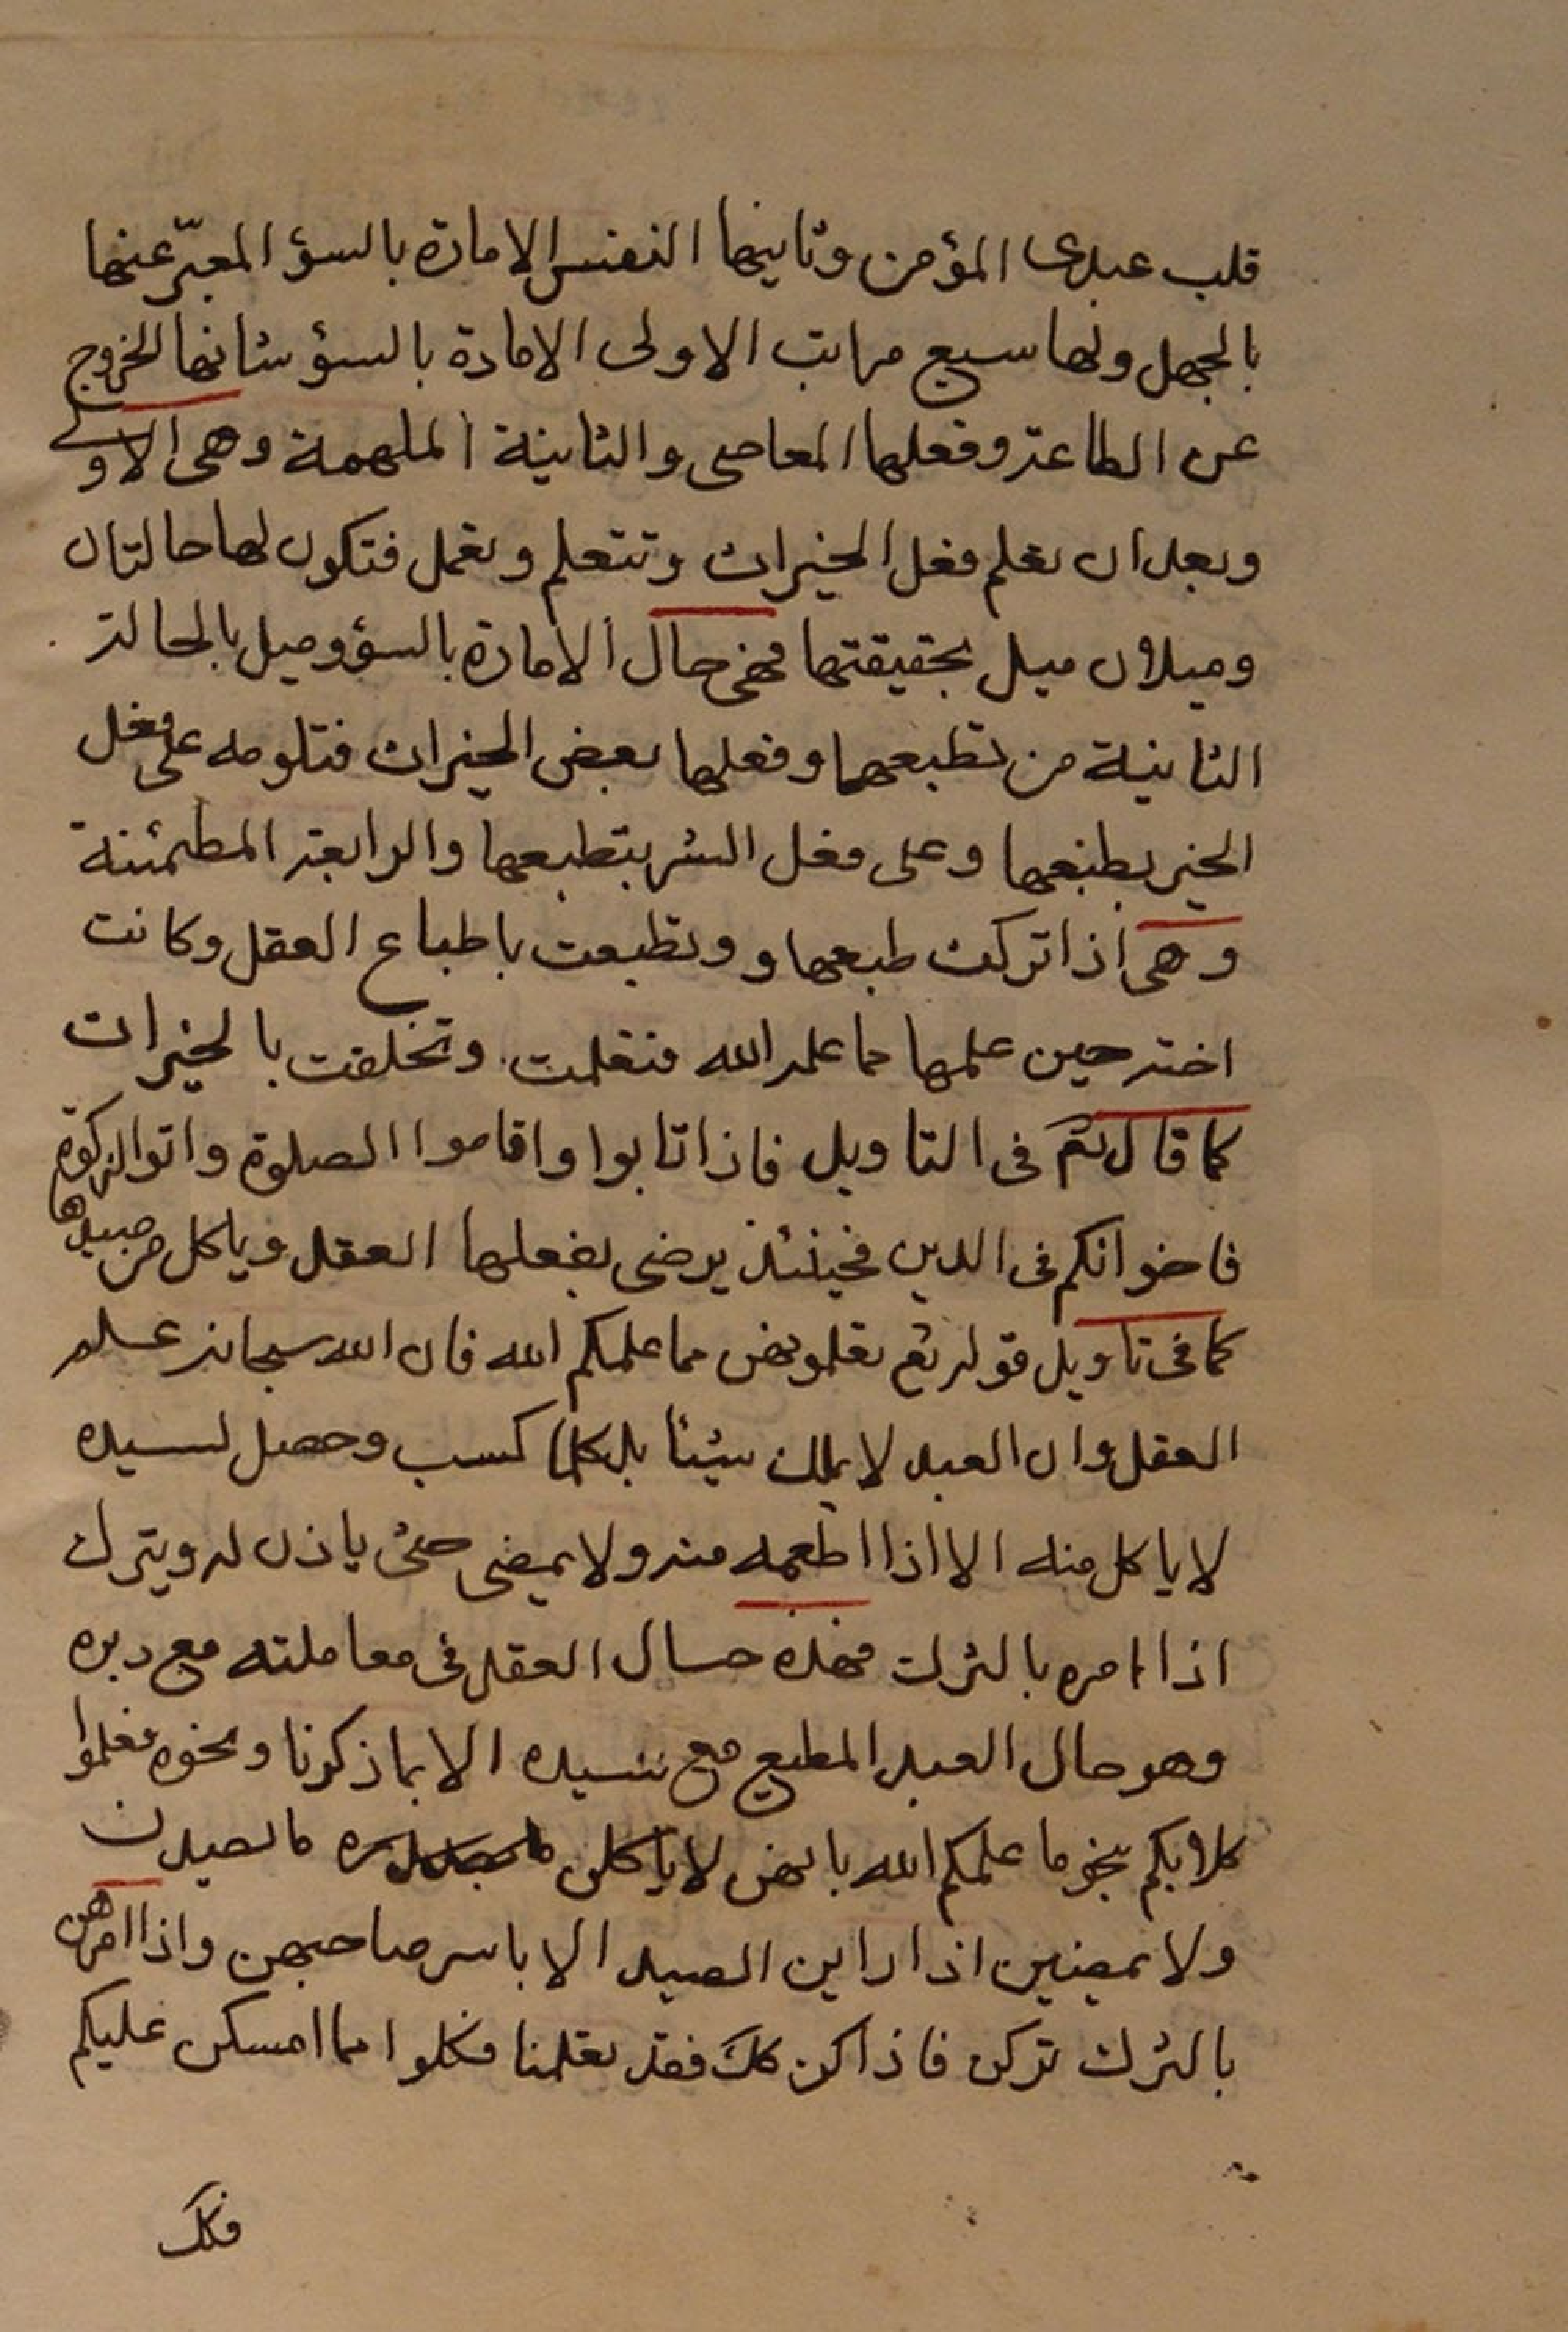 قلب عبدى المؤمن وثانيها النفس الامارة بالسؤ المعبّر عنها
بالجهل ولها سبع مراتب الاولى الامارة بالسؤ شانها الخروج
عن الطاعة وفعلها المعاصى والثانية الملهمة وهى الاولى
وبعد ان تعلم فعل الخيرات وتتعلم وتعمل فتكون لها حالتان
وميلان ميل بحقيقتها فهى حال الامارة بالسؤ وميل بالحالة
الثانية من تطبعها وفعلها بعض الخيرات فتلومه على فعل
الخير بطبعها وعلى فعل الشر بتطبعها والرابعة المطمئنة
وهى اذا تركت طبعها و وتطبعت باطباع العقل وكانت
اخته حين علمها مما علمه الله فتعلمت وتخلقت بالخيرات
كما قال تع فى التاويل فاذا تابوا واقاموا الصلوة واتوا الزكوة
فاخوانكم فى الدين فحينئذ يرضى بفعلها العقل وياكل من صيدها
كما فى تاويل قوله تع تعلمونهن مما علمكم الله فان الله سبحانه علم
العقل وان العبد لا يملك شيئا بل كلما كسب وحصل لسيده
لا ياكل منه الا اذا اطعمه منه ولا يمضى حتى ياذن له ويترك
اذا امره بالترك فهذه حال العقل فى معاملته مع ربه
وهو حال العبد المطيع مع سيده الا بما ذكرنا ونحوه فعلموا
كلابكم بنحو ما علمكم الله بانهن لا ياكلن ما يصيدن
ولا يمضين اذا راين الصيد الا بامر صاحبهن واذا امرهن
بالترك تركن فاذا كن كك فقد تعلمنا فكلوا مما امسكن عليكم
فكك